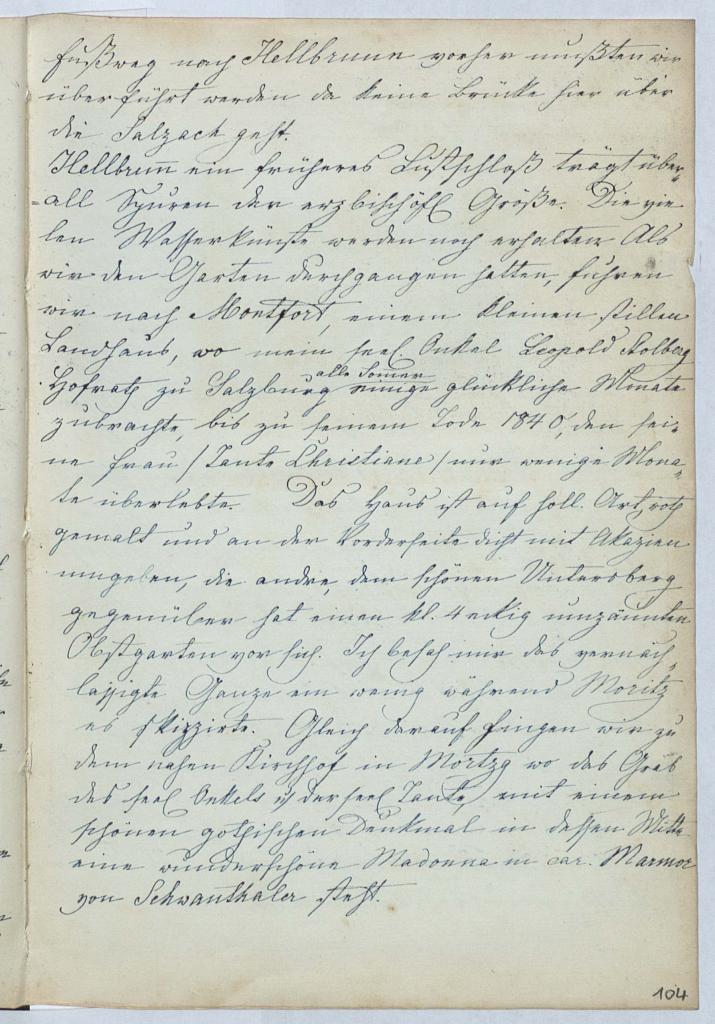 Fußweg nach Hellbrunn vorher mußten wir
überführt werden da keine Brücke hier über
die Salzach geht.
Hellbrunn ein früheres Lustschloß trägt über-
=all Spuren der erzbischöfl Größe. Die vie
len Wasserkünste werden noch erhalten Als
wir den Garten durchgangen hatten, fuhren
wir nach Montfort, einem kleinen stillen
Landhaus, wo mein seel. Onkel Leopold Stolberg
alle Somer
Hofrath zu Salzburg einige glückliche Monate
zubrachte, bis zu seinem Tode 1840, den sei-
ne Frau / Tante Christiane / nur wenige Mona-
te überlebte. Das Haus ist auf holl. Art roth
gemalt und an der Vorderseite dicht mit Akazien
umgeben, die andre, dem schönen Untersberg
gegenüber hat einen kl. 4eckig umzäunten
Obstgarten vor sich. Ich besah mir das vernach-
lässigte Ganze ein wenig während Moritz
es skizzirte. Gleich darauf gingen wir zu
dem nahen Kirchhof in Mortzg wo das Grab
des seel Onkels u der seel Tante, mit einem
schönen gothischen Denkmal in dessen Mitte
eine wunderschöne Madonna in car. Marmor
von Schwanthaler steht.
104